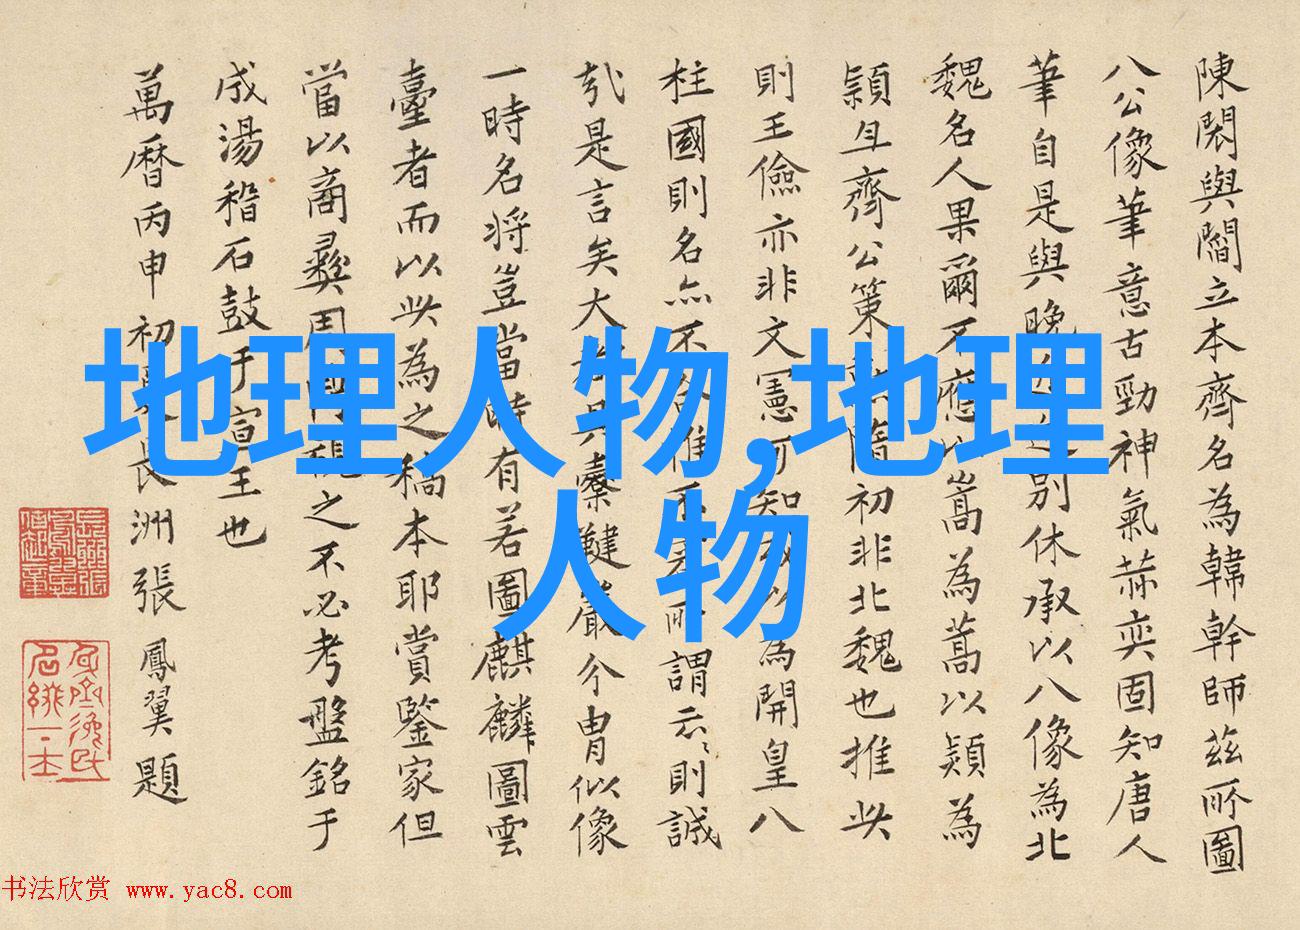 陳閎與閻立本齊名為韓幹師茲所圖
八公像筆意古勁神氣赫奕固知唐人
筆自是與晚
別休承以八像為北
魏名人果爾不應以嵩為蒿以熲為
穎且齊公策
隋初非北魏也推此
則王儉亦非文憲可知
以為開皇八
柱國則名
不
所謂云云則誠
哉是言矣大
嚴介冑似像
一時名將豈當時有若圖麒麟圖雲
臺者而以此為之稿本耶賞鑒家但
當以商彝周
之不必考盤銘于
成湯稽石鼓于宣王也
萬曆丙申初
長洲張鳳翼題
地理人物,地理
人物
书法欣赏 www.yac8.com